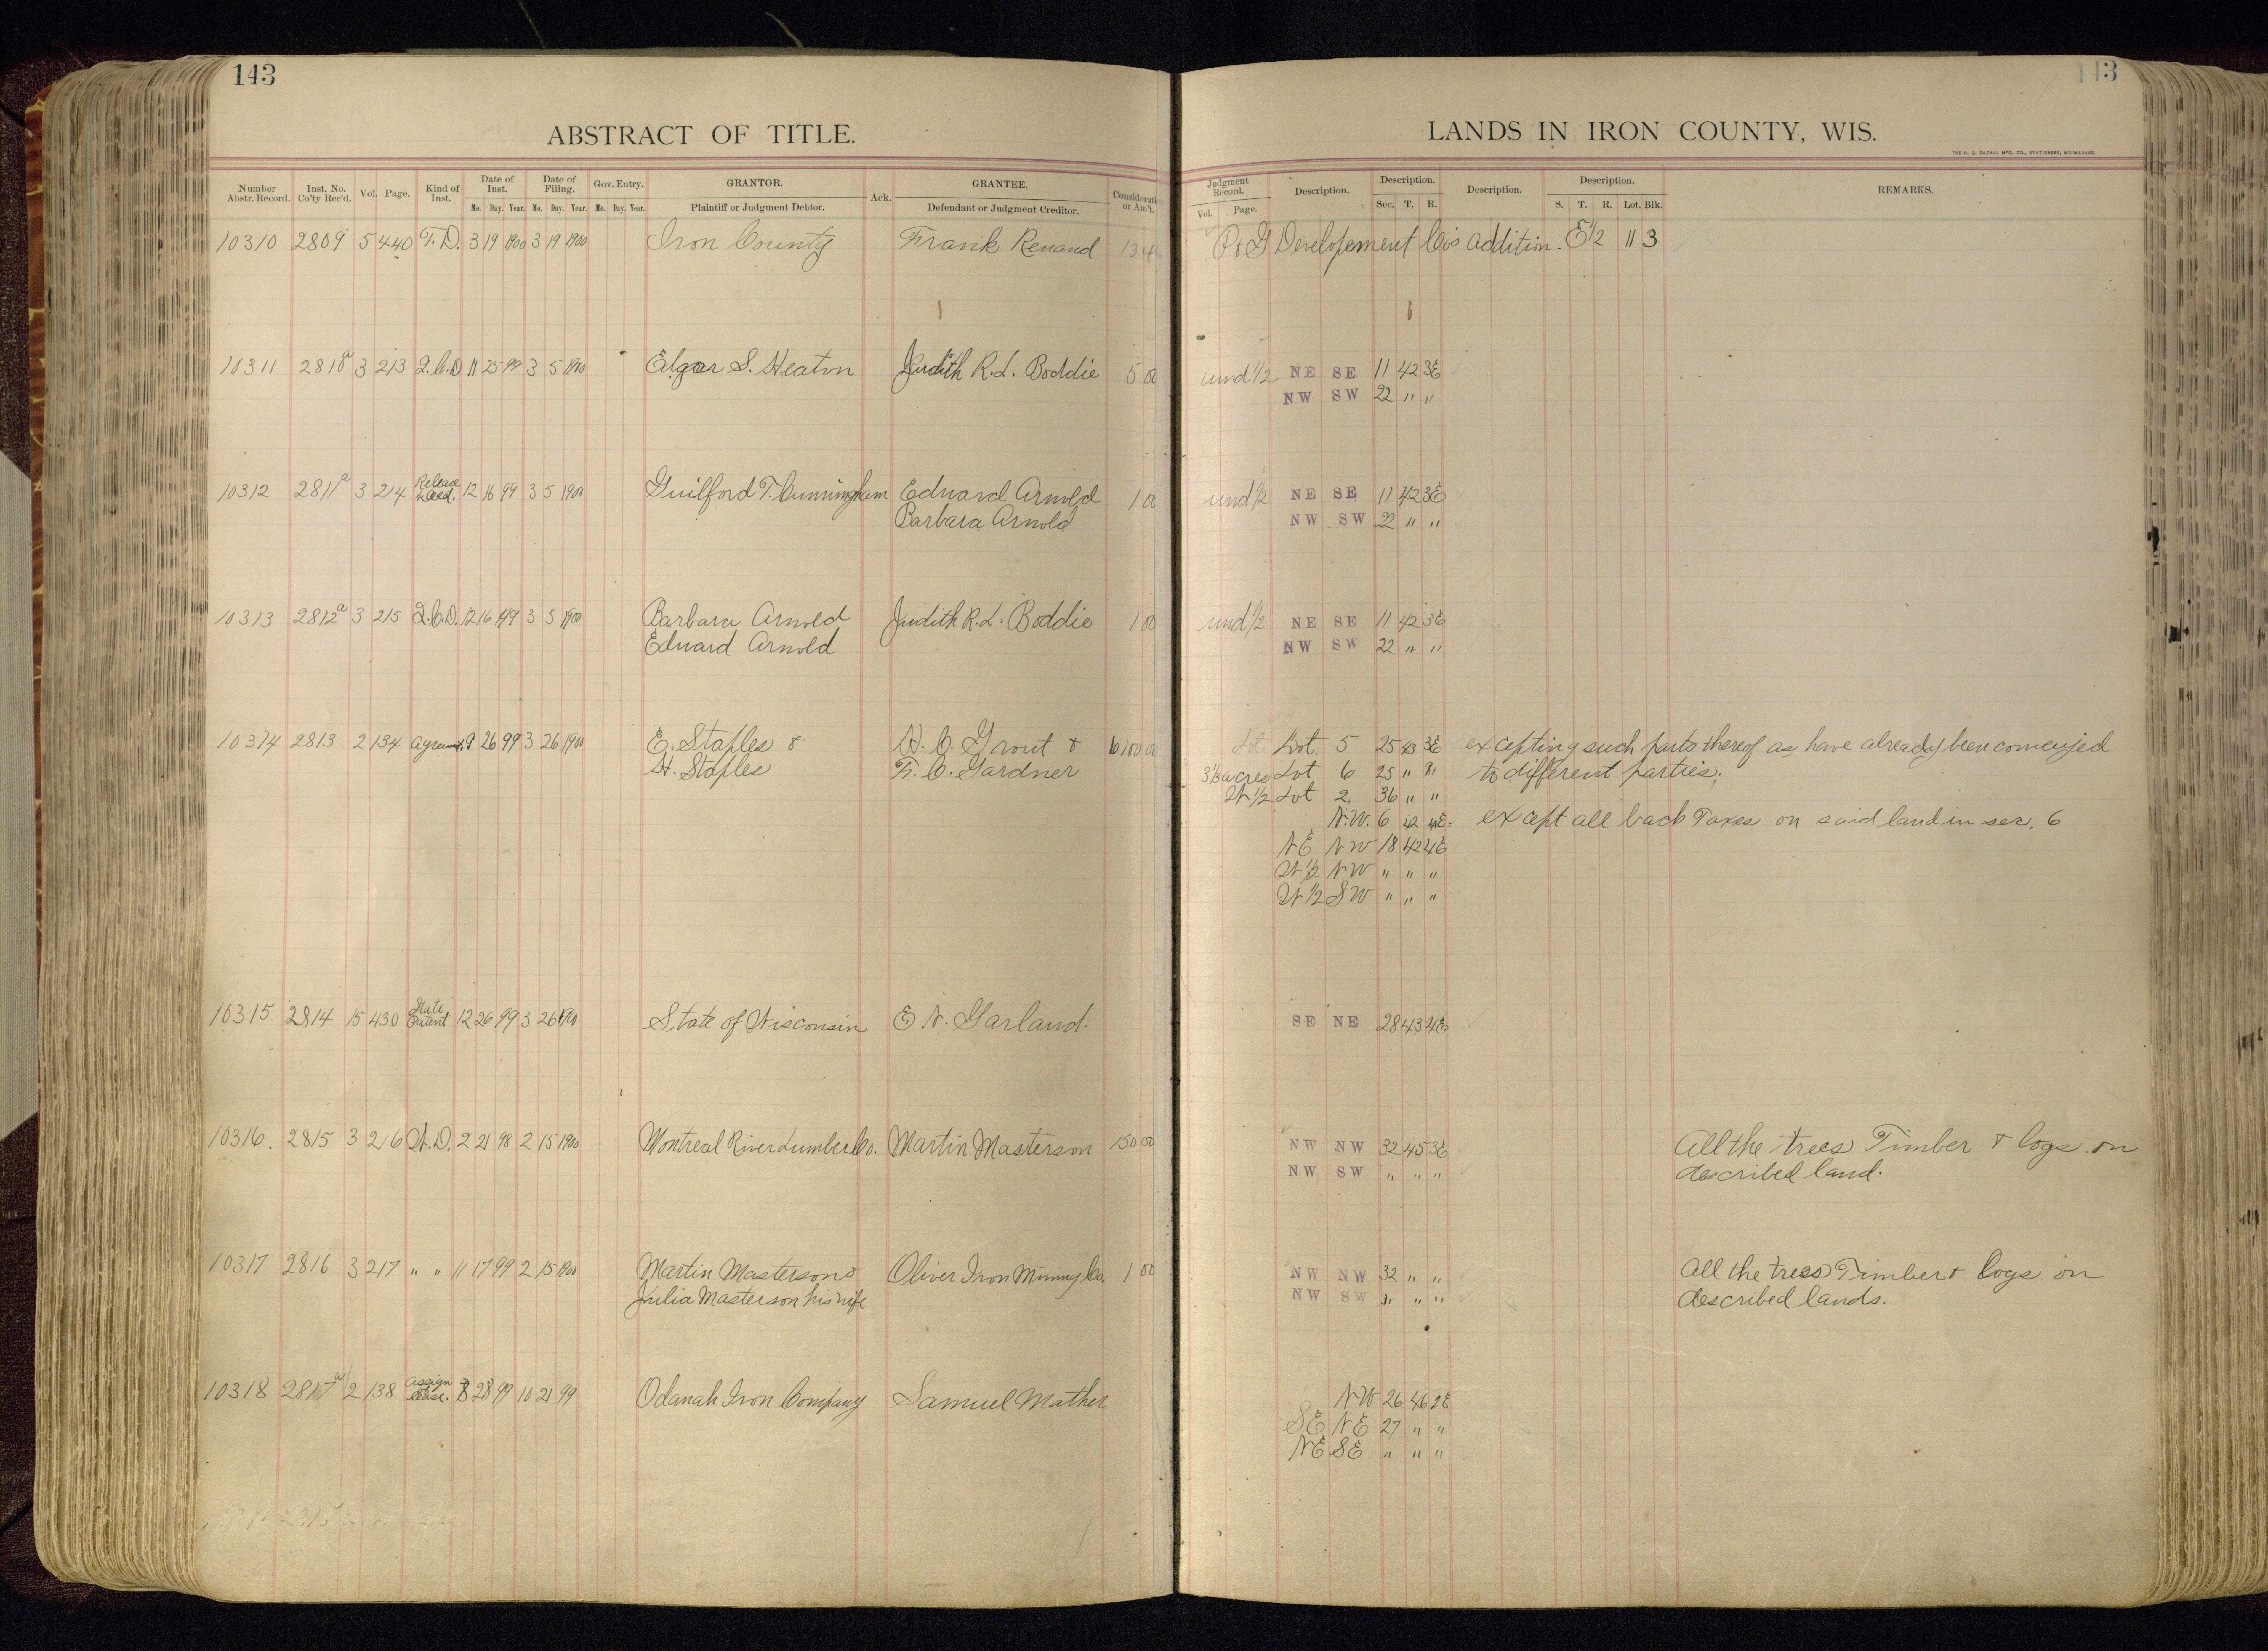 143
143
ABSTRACT OF TITLE.
LANDS IN IRON COUNTY, WIS.
THE H. G. RAZALL MFG. CO., STATIONERS, MILWAUKEE.
Number Abstr. Record. Inst. No. Co'ty Rec'd. Vol. Page. Kind of Inst. Date of Inst. Mo. Day. Year. Date of Filing. Mo. Day. Year. Gov. Entry. Mo. Day. Year. GRANTOR. Plaintiff or Judgment Debtor. Ack. GRANTEE. Defendant or Judgment Creditor. Consideration or Am't.
Judgment Record. Vol. Page. Description. Description. Sec. T. R. Description. Description. S. T. R. Lot. Blk. REMARKS.
10310 2809 5 440 T.D. 3 19 1900 3 19 1900 Iron County Frank Renand 134 P & G Developement Co's addition. E 1/2 11 3
10311 2810a 3 213 Q.C.D 11 25 99 3 5 1900 Elgar S. Heaton Judith R.L. Boddie 5 00 und 1/2 NE SE 11 42 3E
NW SW 22 " "
10312 2811a 3 214 Release Deed. 12 16 99 3 5 1900 Guilford T. Cunningham Edward Arnold 1 00 und 1/2 NE SE 11 42 3E
Barbara Arnold NW SW 22 " "
10313 2812a 3 215 Q.C.D. 12 16 99 3 5 1900 Barbara Arnold Judith R.L. Boddie 1 00 und 1/2 NE SE 11 42 3E
Edward Arnold NW SW 22 " "
10314 2813 2 134 Agreemt. 9 26 99 3 26 1900 E. Staples & H. C. Grout & 6100 00 Lot 5 25 43 3E excepting such parts thereof as have already been conveyed
H. Staples F. C. Gardner 3 1/3 acres Lot 6 25 " " to different parties;
W 1/2 Lot 2 36 " "
N.W. 6 42 4E. except all back Taxes on said land in sec. 6
NE NW 18 42 4E
W 1/2 NW " " "
W 1/2 SW " " "
10315 2814 15 430 State Patent 12 26 99 3 26 1900 State of Wisconsin E N. Garland. SE NE 28 43 4E
10316. 2815 3 216 W.D. 2 21 98 2 15 1900 Montreal River Lumber Co. Martin Masterson 150 00 NW NW 32 45 3E All the trees Timber & logs on
NW SW " " " described land.
10317 2816 3 217 " " 11 17 99 2 15 1900 Martin Masterson & Oliver Iron Mining Co. 1 00 NW NW 32 " " All the trees Timber & logs on
Julia Masterson his wife NW SW " " " described lands.
10318 2817a 2 138 Assign Lease. 8 28 99 10 21 99 Odanah Iron Company Samuel Mather NW 26 46 2E
SE NE 27 " "
NE SE " " "